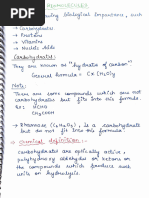 Biomolecules
having biological importance, such
→ Carbohydrates
→ Proteins
→ Vitamins
→ Nucleic Acids
Carbohydrates:
They are known as "hydrate of carbon"
General formula = Cx(H2O)y
Note:
There are some compounds which are not
carbohydrates but fit into this formula.
Ex: HCHO
CH3COOH
→ Rhamnose (C6H12O5), is a carbohydrate
but do not fit into this formula
Chemical definition:
carbohydrates are optically active,
polyhydroxy aldehydes or ketones or
the compounds which produce such
units on hydrolysis.